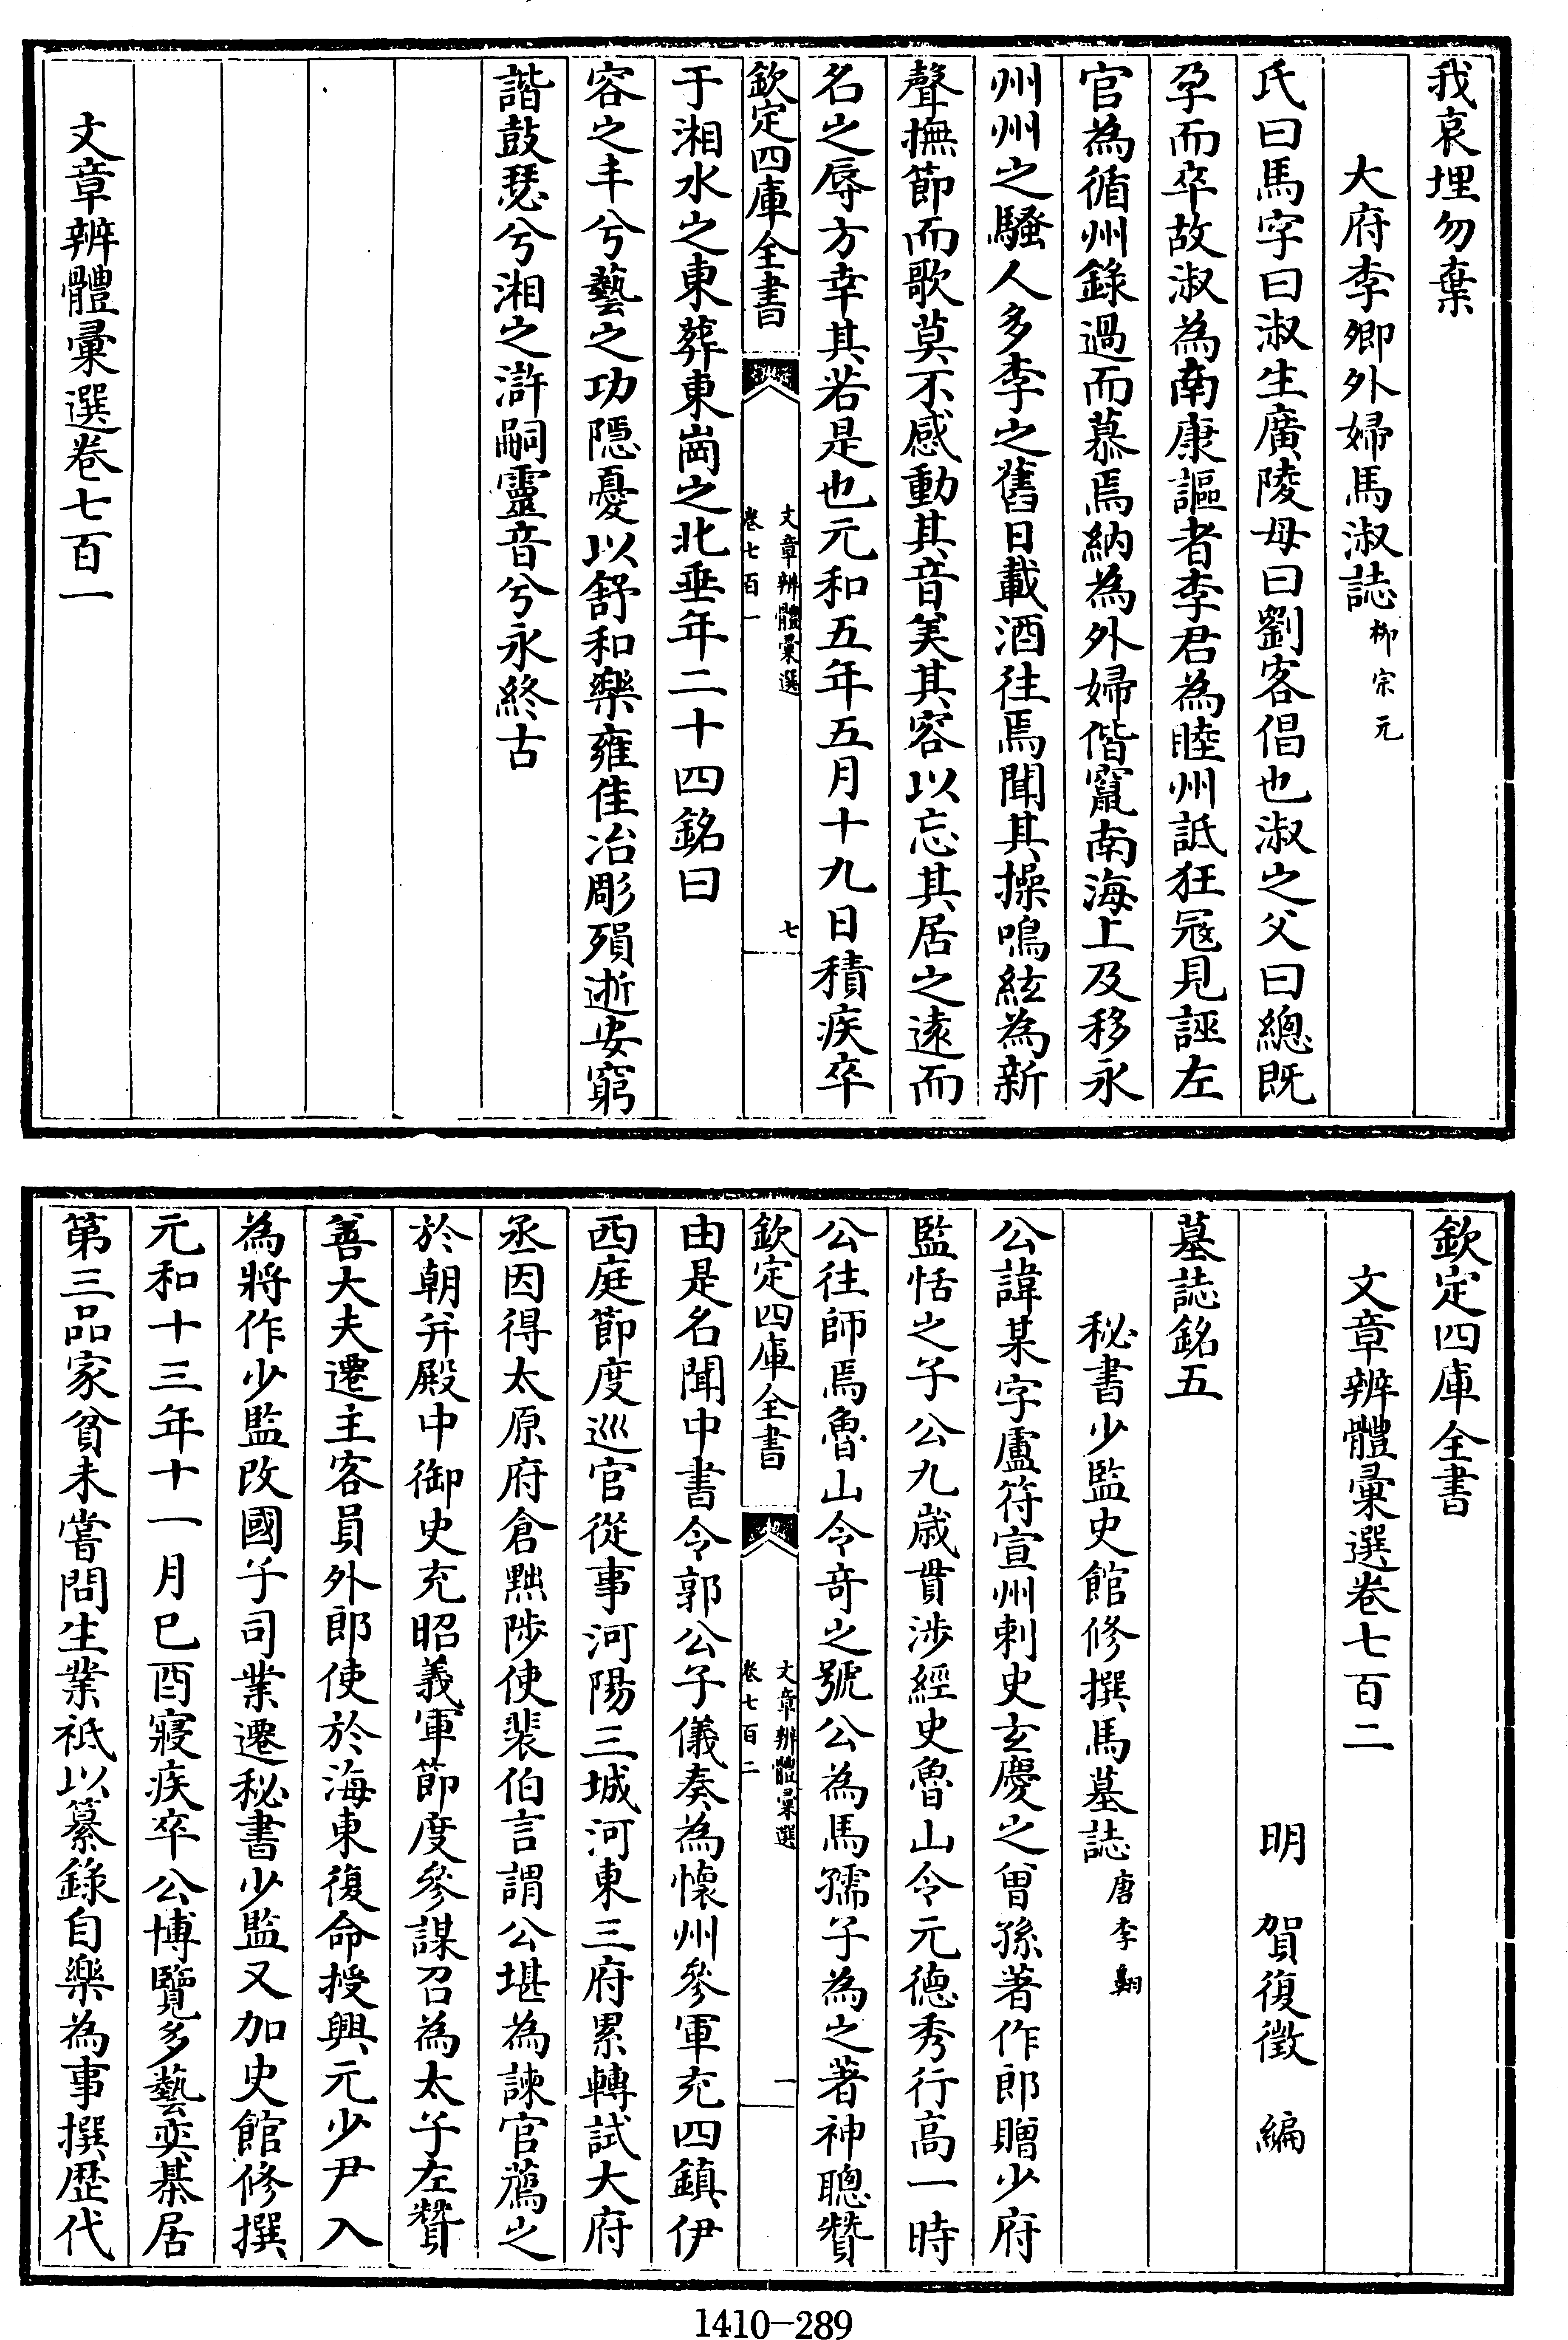 我哀埋勿棄
大府李卿外婦馬淑誌柳宗元
氏曰馬字曰淑生廣陵母曰劉客倡也淑之父曰總既
孕而卒故淑為南康謳者李君為睦州詆狂冦見誣左
官為循州錄過而慕焉納為外婦偕竄南海上及移永
州州之騷人多李之舊日載酒往焉聞其操鳴絃為新
聲撫節而歌莫不感動其音美其容以忘其居之遠而
名之辱方幸其若是也元和五年五月十九日積疾卒
欽定四庫全書
文章辨體彙選
卷七百一
七
于湘水之東葬東崗之北垂年二十四銘曰
容之丰兮藝之功隠憂以舒和樂雍佳冶彫殞逝安窮
諧鼓瑟兮湘之滸嗣靈音兮永終古
文章辨體彙選卷七百一
欽定四庫全書
文章辨體彙選卷七百二
明 賀復徵 編
墓誌銘五
秘書少監史館修撰馬墓誌唐李翺
公諱某字盧符宣州刺史玄慶之曾孫著作郎贈少府
監恬之子公九歲貫涉經史魯山令元德秀行高一時
公往師焉魯山令奇之號公為馬孺子為之著神聰贊
欽定四庫全書
文章辨體彙選
卷七百二
一
由是名聞中書令郭公子儀奏為懷州參軍充四鎮伊
西庭節度巡官從事河陽三城河東三府累轉試大府
丞因得太原府倉黜陟使裴伯言謂公堪為諫官薦之
於朝并殿中御史充昭義軍節度參謀召為太子左贊
善大夫遷主客員外郎使於海東復命授興元少尹入
為將作少監改國子司業遷秘書少監又加史館修撰
元和十三年十一月巳酉寢疾卒公博覽多藝奕棊居
第三品家貧未嘗問生業祗以纂錄自樂為事撰歴代
1410-289